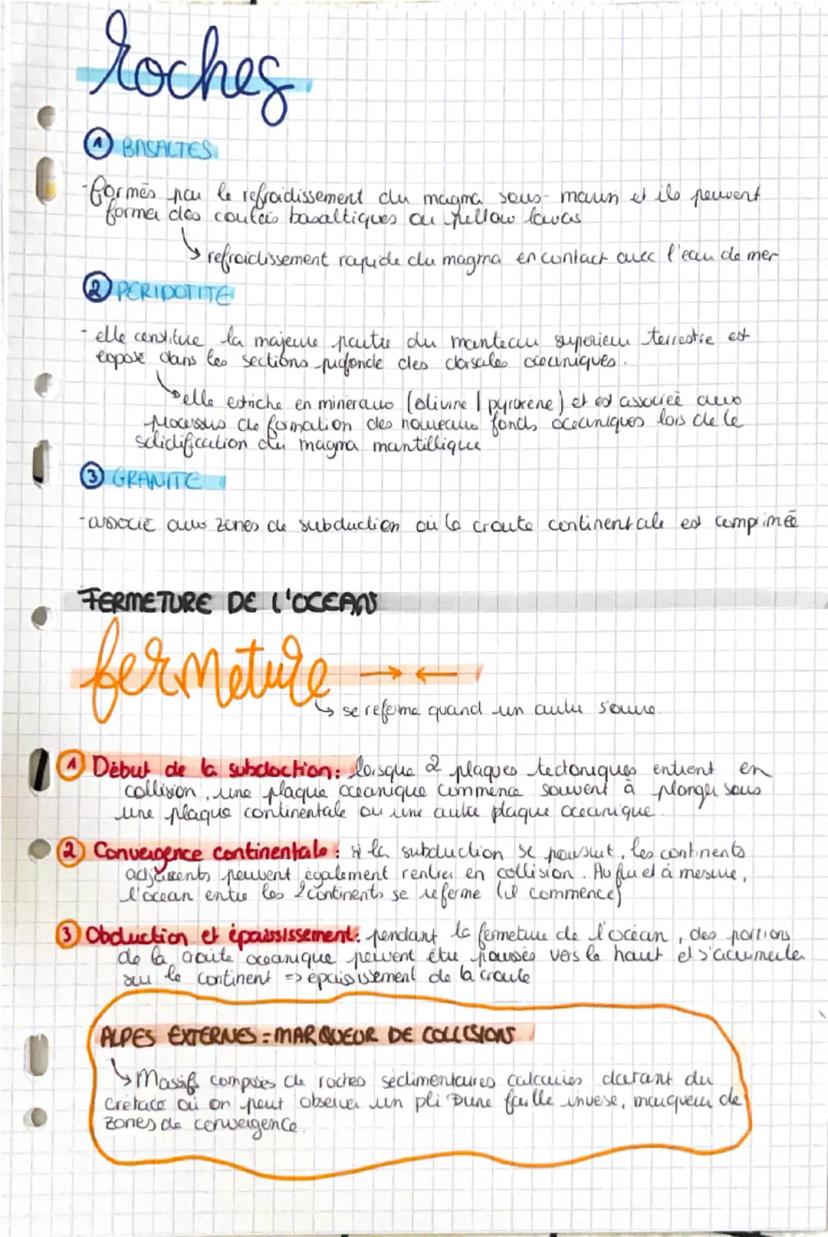 Roches
① BASALTES
- formés par le refroidissement du magma sous-marin et ils peuvent
former des coulées basaltiques ou pillow lavas
↳ refroidissement rapide du magma en contact avec l'eau de mer
② PERIDOTITE
- elle constitue la majeure partie du manteau superieur terrestre est
exposé dans les sections profonde des dorsales océaniques.
↳ elle est riche en mineraux (olivine / pyroxène) et est associée aux
processus de formation des nouveaux fonds océaniques lors de la
solidification du magma mantillique
③ GRANITE
- associé aux zones de subduction où la croute continentale est comprimée
FERMETURE DE L'OCEAN
fermeture → ←
↳ se referme quand un autre s'ouvre
① Début de la subduction: lorsque 2 plaques tectoniques entrent en
collision, une plaque océanique commence souvent à plonger sous
une plaque continentale ou une autre plaque océanique.
② Convergence continentale: si la subduction se poursuit, les continents
adjacents peuvent également rentrer en collision. Au fur et à mesure,
l'océan entre les 2 continents se referme (il commence)
③ Obduction et épaississement: pendant la fermeture de l'océan, des portions
de la croûte océanique peuvent être poussées vers le haut et s'accumule
sur le continent => épaississement de la croute
ALPES EXTERNES = MARQUEUR DE COLLISIONS
↳ Massifs composés de roches sédimentaires calcaires datant du
Crétacé où on peut observer un pli d'une faille inverse, marqueur de
zones de convergence.